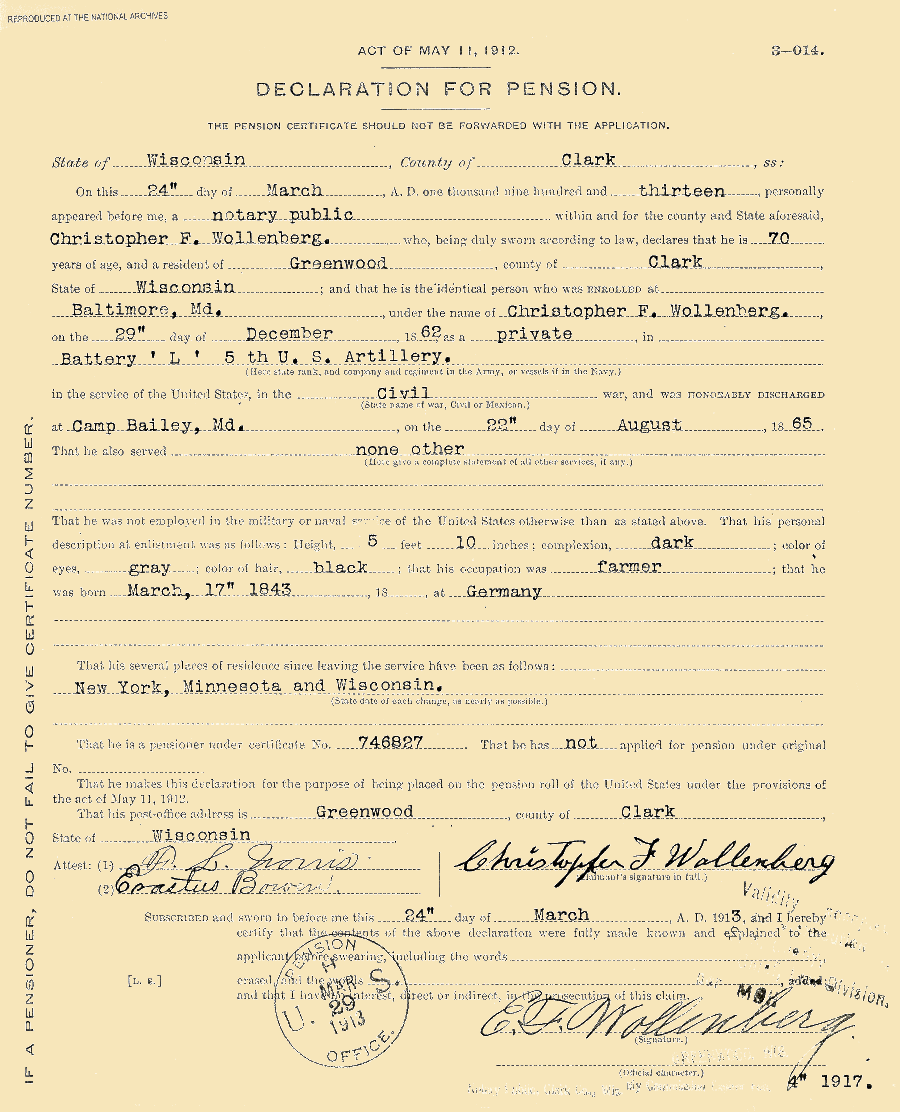 REPRODUCED AT THE NATIONAL ARCHIVES
ACT OF MAY 11, 1912.
3—014.
DECLARATION FOR PENSION.
THE PENSION CERTIFICATE SHOULD NOT BE FORWARDED WITH THE APPLICATION.
State of Wisconsin, County of Clark, ss:
On this 24" day of March, A. D. one thousand nine hundred and thirteen, personally
appeared before me, a notary public within and for the county and State aforesaid,
Christopher F. Wollenberg. who, being duly sworn according to law, declares that he is 70
years of age, and a resident of Greenwood, county of Clark,
State of Wisconsin; and that he is the identical person who was ENROLLED at
Baltimore, Md., under the name of Christopher F. Wollenberg.,
on the 29" day of December, 1862, as a private, in
Battery ' L ' 5 th U. S. Artillery.
(Here state rank, and company and regiment in the Army, or vessels if in the Navy.)
in the service of the United States, in the Civil war, and WAS HONORABLY DISCHARGED
(State name of war, Civil or Mexican.)
at Camp Bailey, Md., on the 22" day of August, 1865.
That he also served none other
(Here give a complete statement of all other services, if any.)
That he was not employed in the military or naval service of the United States otherwise than as stated above. That his personal
description at enlistment was as follows: Height, 5 feet 10 inches; complexion, dark; color of
eyes, gray; color of hair, black; that his occupation was farmer; that he
was born March, 17" 1843, 18, at Germany
That his several places of residence since leaving the service have been as follows:
New York, Minnesota and Wisconsin.
(State date of each change, as nearly as possible.)
That he is a pensioner under certificate No. 746827. That he has not applied for pension under original
No.
That he makes this declaration for the purpose of being placed on the pension roll of the United States under the provisions of
the act of May 11, 1912.
That his post-office address is Greenwood, county of Clark,
State of Wisconsin
Attest: (1) P. L. Norris
Christopher F Wollenberg
(Claimant's signature in full.)
(2) Erastus Bowen
Validity
SUBSCRIBED and sworn to before me this 24" day of March, A. D. 1913, and I hereby
certify that the contents of the above declaration were fully made known and explained to the
applicant before swearing, including the words
[L. S.] erased, and the words, added
and that I have no interest, direct or indirect, in the prosecution of this claim.
Division.
PENSION
MAR
29
1913
U. S.
OFFICE.
E. F. Wollenberg
(Signature.)
(Official character.)
4" 1917.
IF A PENSIONER, DO NOT FAIL TO GIVE CERTIFICATE NUMBER.